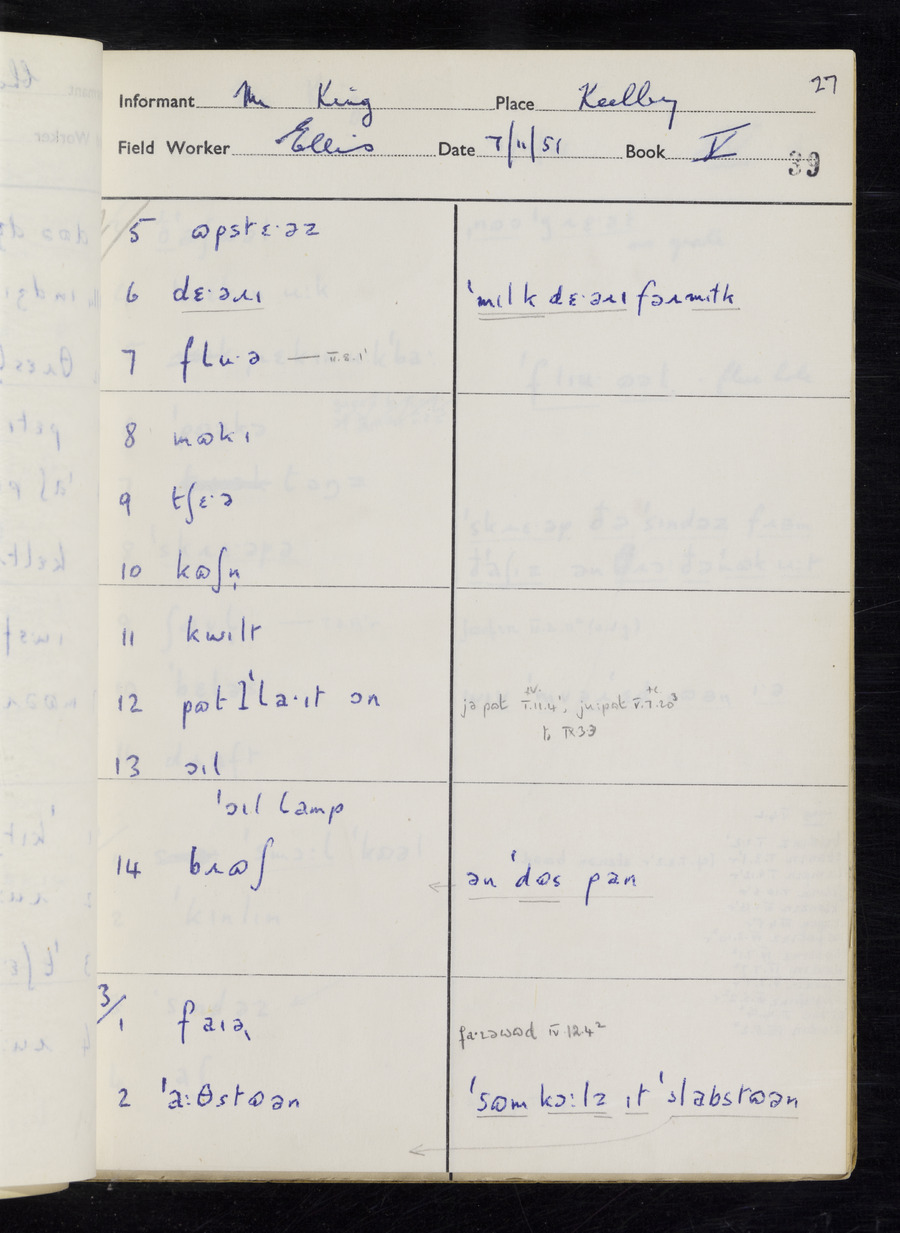 27
Informant Mr King Place Keelby
Field Worker Ellis Date 7/11/51 Book V
39
5 ɷpstɛ·əz
6 dɛ·əɹɪ 'mɪlk dɛ·əɹɪ fəɹmɪɫk
7 flu·ə — V.2.1
8 mɷkɪ
9 tʃɛ·ə
10 kɷʃn̩
11 kwɪlt
12 pɷt ɪ'la·ɪt ɔn jə pɷt IV. I.11.4; ju:pɷt V.7.20³ +c
t, IX 33
13 ɔɪl
'ɔɪl lamp
14 bɹɷʃ ən 'dɷs pan
3/
1 faɪə fa·ɪəwɷd IV.12.4²
2 'a:θstɷən 'sɷm kɔ:lz ɪt 'slabstɷən